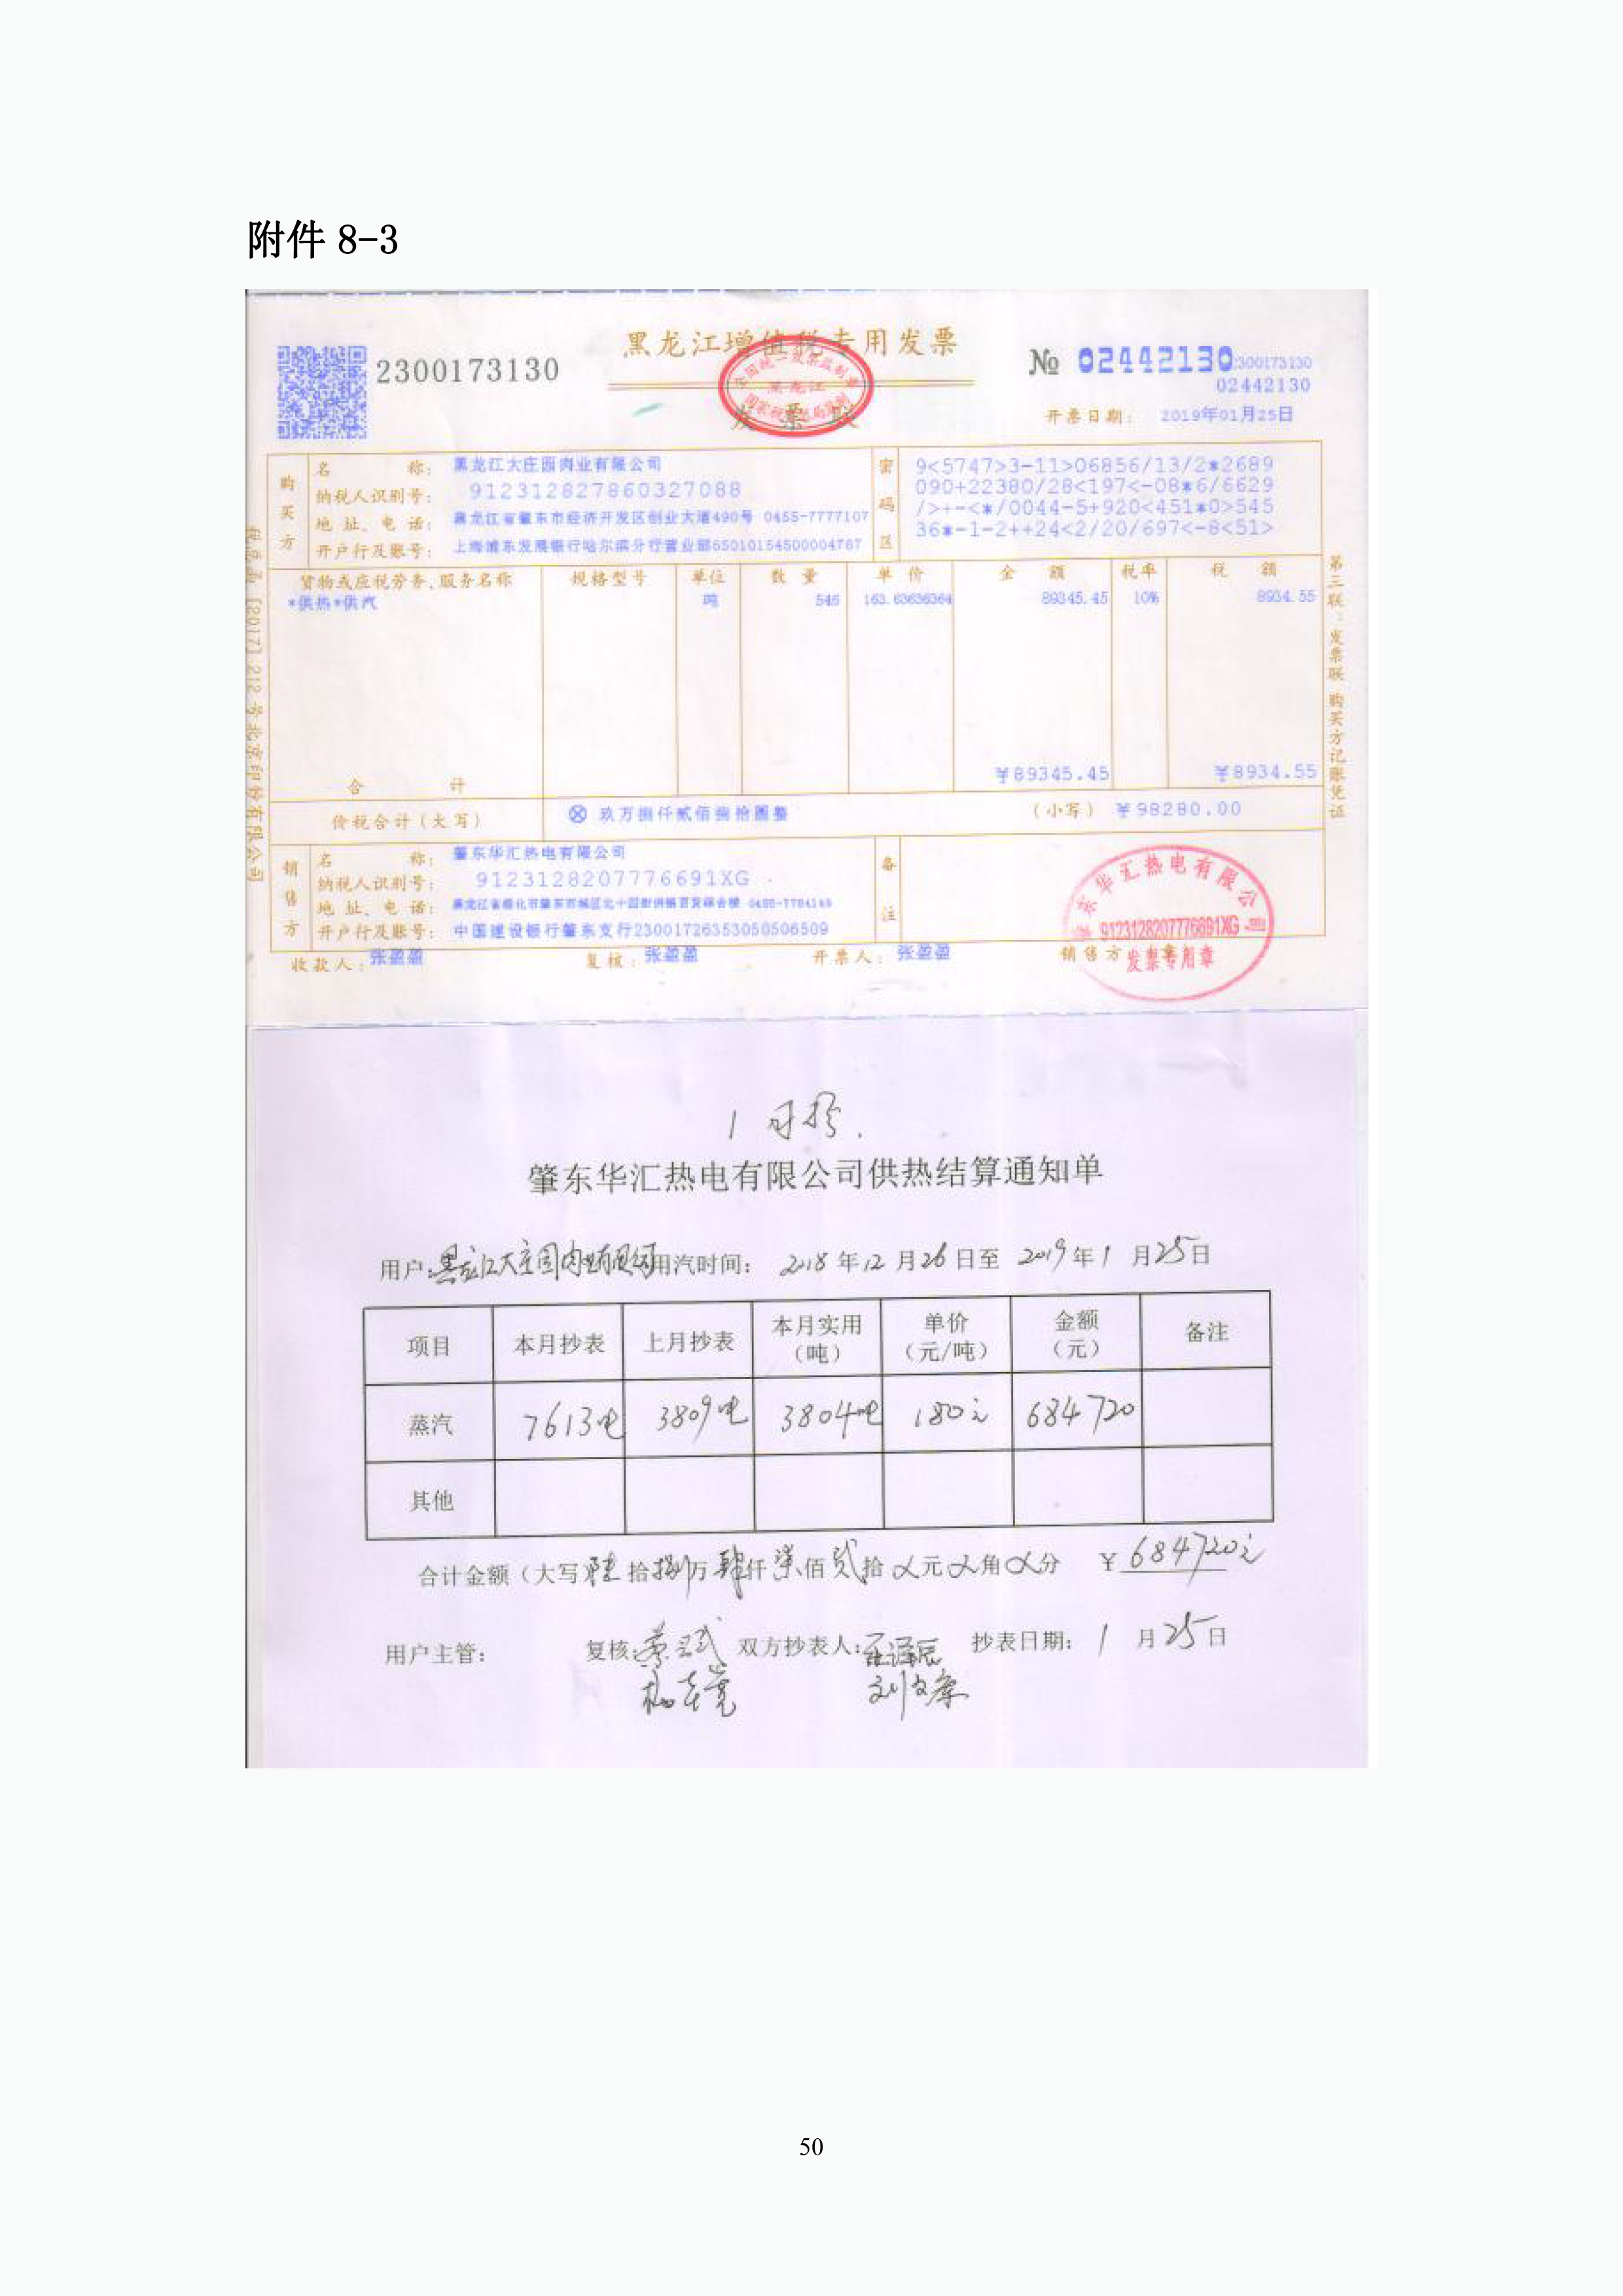 附件 8-3
2300173130
黑龙江增值税专用发票
№ 02442130
2300173130
02442130
全国统一发票监制章
黑龙江
发票联
开票日期： 2019年01月25日
购买方
名 称： 黑龙江大庄园肉业有限公司
纳税人识别号： 912312827860327088
地址、电话： 黑龙江省肇东市经济开发区创业大道490号 0455-7777107
开户行及账号： 上海浦东发展银行哈尔滨分行营业部65010154500004787
密码区
9<5747>3-11>06856/13/2*2689
090+22380/28<197<-08*6/6629
/>+-<*/0044-5+920<451*0>545
36*-1-2++24<2/20/697<-8<51>
货物或应税劳务、服务名称 规格型号 单位 数量 单价 金额 税率 税额
*供热*供汽 吨 546 163.63636364 89345.45 10% 8934.55
合 计 ¥89345.45 ¥8934.55
价税合计（大写） ⊗ 玖万捌仟贰佰捌拾圆整 （小写） ¥98280.00
销售方
名 称： 肇东华汇热电有限公司
纳税人识别号： 9123128207776691XG
地址、电话： 黑龙江省绥化市肇东市城区北十四街供销百货综合楼 0455-7784149
开户行及账号： 中国建设银行肇东支行23001726353050506509
备注
收款人： 张盈盈 复核： 张盈盈 开票人： 张盈盈 销售方：章
肇东华汇热电有限公司
9123128207776691XG
发票专用章
第三联：发票联 购买方记账凭证
〔2017〕212号北京印钞有限公司
1月托.
肇东华汇热电有限公司供热结算通知单
用户：黑龙江大庄园肉业有限公司 用汽时间： 2018年12月26日至 2019年1月25日
项目 本月抄表 上月抄表 本月实用（吨） 单价（元/吨） 金额（元） 备注
蒸汽 7613吨 3809吨 3804吨 180元 684720
其他
合计金额（大写）陆拾捌万肆仟柒佰贰拾〤元〤角〤分 ¥684720元
用户主管： 复核： 双方抄表人： 抄表日期： 1月25日
50